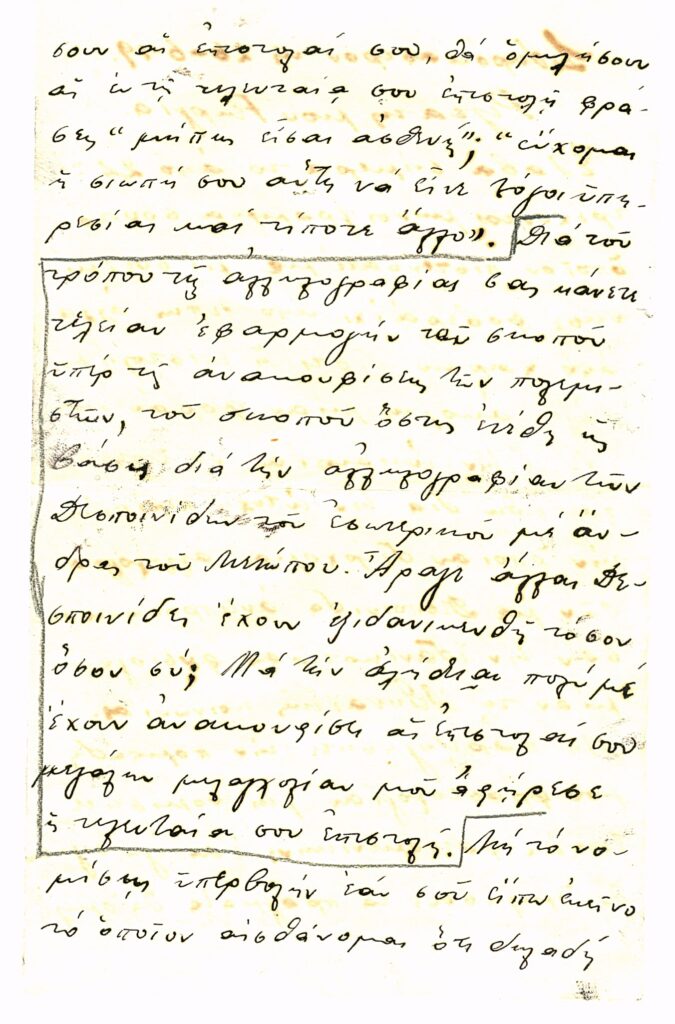 σουν αἱ ἐπιστολαί σου, θά ὁμιλήσουν
αἱ ἐν τῇ τελευταίᾳ σου ἐπιστολῇ φρά-
σεις "μήπως εἶσαι ἀσθενής"; "εὔχομαι
ἡ σιωπή σου αὕτη νά εἶνε λόγοι ὑπη-
ρεσίας καί τίποτε ἄλλο". Διά τοῦ
τρόπου τῆς ἀλληλογραφίας σας κάνετε
τελείαν ἐφαρμογήν τοῦ σκοποῦ
ὑπέρ τῆς ἀνακουφίσεως τῶν πολεμι-
στῶν, τοῦ σκοποῦ ὅστις ἐτέθη ὡς
βάσις διά τήν ἀλληλογραφίαν τῶν
Δεσποινίδων τοῦ ἐσωτερικοῦ μέ ἄν-
δρας τοῦ Μετώπου. Ἆραγε ἄλλαι Δε-
σποινίδες ἔχουν ἐξιδανικευθῆ τόσον
ὅσον σύ; Μά τήν ἀλήθεια πολύ μέ
ἔχουν ἀνακουφίσει αἱ ἐπιστολαί σου
μεγάλην μελαγχολίαν μοῦ ἀφῄρεσε
ἡ τελευταία σου ἐπιστολή. Μή τό νο-
μίσῃς ὑπερβολήν ἐάν σοῦ εἴπω ἐκεῖνο
τό ὁποῖον αἰσθάνομαι ὅτι δηλαδή